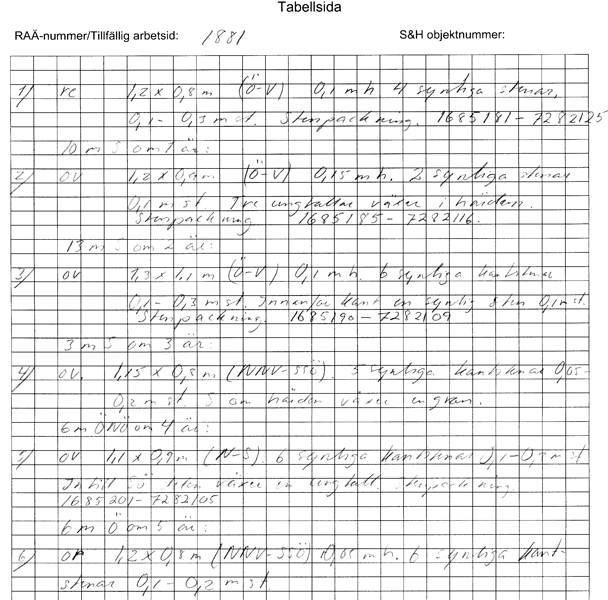 Tabellsida
RAÄ-nummer/Tillfällig arbetsid: 1881 S&H objektnummer:
1) re 1,2 x 0,8 m (Ö-V) 0,1 m h 4 synliga stenar,
0,1 - 0,3 m st. Stenpackning. 1685181-7282125
10 m S om 1 är:
2) ov 1,2 x 0,9 m (Ö-V) 0,15 m h. 2 synliga stenar
0,1 m st. Tre ungtallar växer i härden.
Stenpackning 1685185-7282116.
13 m S om 2 är:
3) ov 1,3 x 1,1 m (Ö-V) 0,1 m h. 6 synliga kantstenar
0,1 - 0,3 m st. Innanför kant en synlig sten 0,1 m st.
Stenpackning. 1685190-7282109
3 m S om 3 är:
4) ov. 1,15 x 0,8 m (NNV-SSÖ). 5 synliga kantstenar 0,05-
0,2 m st. S om härden växer en gran.
6 m ÖNÖ om 4 är:
5) ov 1,1 x 0,9 m (N-S). 6 synliga kantstenar 0,1-0,2 m st
Intill SÖ delen växer en ungtall. stenpackning.
1685201-7282105
6 m Ö om 5 är:
6) 1,2 x 0,8 m (NNV-SSÖ) 0,05 m h. 6 synliga kant-
stenar 0,1 - 0,2 m st